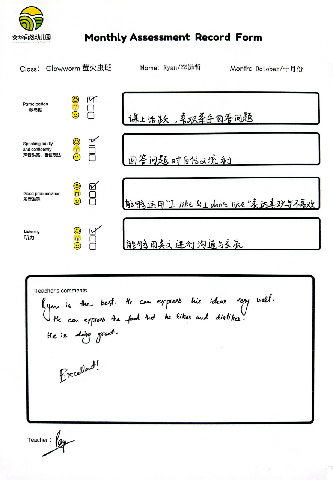 Monthly Assessment Record Form
Class: Glowworm 萤火虫班 Name: Ryan/ Month: October/十月份
Participation
课上活跃，喜欢举手回答问题
Speaking loudly and confidently
回答问题时自信又流利
Good pronunciation
能够运用"I like 与 I don't like"表达喜欢与不喜欢
Listening
听力
能够用英文进行沟通与表达
Teacher's comments
Ryan is the best. He can express his ideas very well.
He can express the food that he likes and dislikes.
He is doing great.
Excellent!
Teacher: